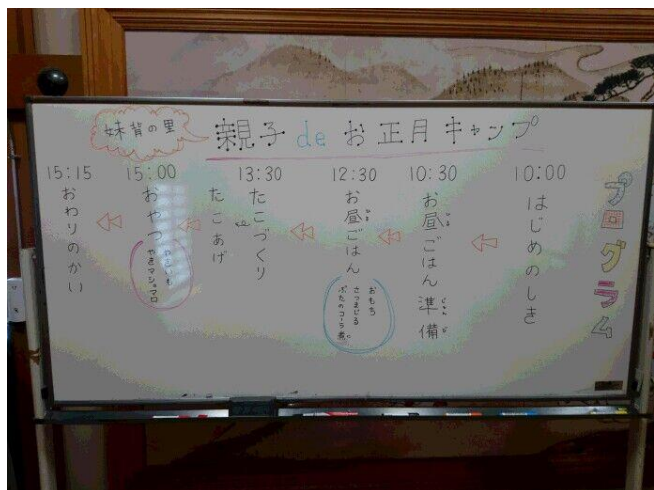 妹背の里
親子 de お正月キャンプ
プログラム
10:00
はじめのしき
10:30
お昼ごはん準備
ひる
じゅん び
12:30
お昼ごはん
ひる
おもち
さつまじる
ぶたのコーラ煮
13:30
たこづくり
たこあげ
15:00
おやつ
やきマシュマロ
15:15
おわりのかい